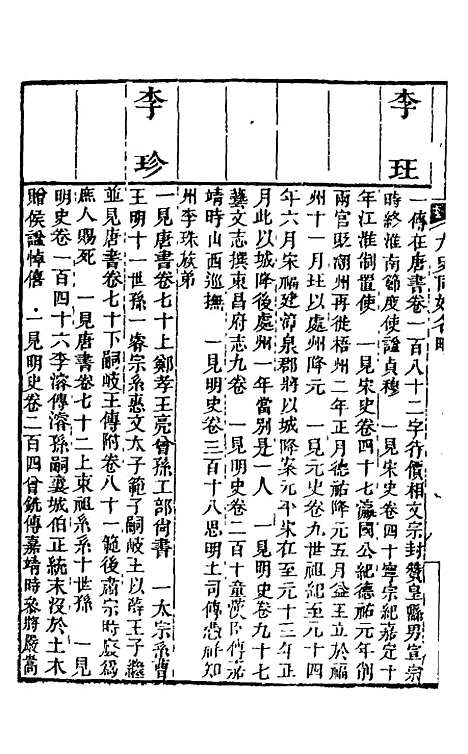 李珏
一傳在唐書卷一百八十二字待價相文宗封贊皇縣男宣宗
時終淮南節度使諡貞穆　一見宋史卷四十寧宗紀嘉定十
年江淮制置使　一見宋史卷四十七瀛國公紀德祐元年削
兩官貶潮州再徙梧州二年正月德祐降元五月益王立於福
州十一月珏以處州降元　一見元史卷九世祖紀至元十四
年六月宋福建節泉郡將以城降案元年在至元十三年正
月此以城降後處州一年當別是一人　一見明史卷二百十童漢臣傳嘉
藝文志撰東昌府志九卷
靖時山西巡撫　一見明史卷三百十八思明土司傳憑祥知
州李珠族弟
李珍
一見唐書卷七十上鄭孝王亮曾孫工部尚書　一太宗系曹
王明十一世孫一睿宗系惠文太子範子嗣岐王以薛王子繼
並見唐書卷七十下嗣岐王傳附卷八十一範後肅宗時廢為
庶人賜死　一見唐書卷七十二上東祖系系十世孫　一見
明史卷一百四十六李濬傳濬孫嗣襄城伯正統末沒於土木
贈侯諡悼僖　一見明史卷二百四曾銑傳嘉靖時參將嚴嵩